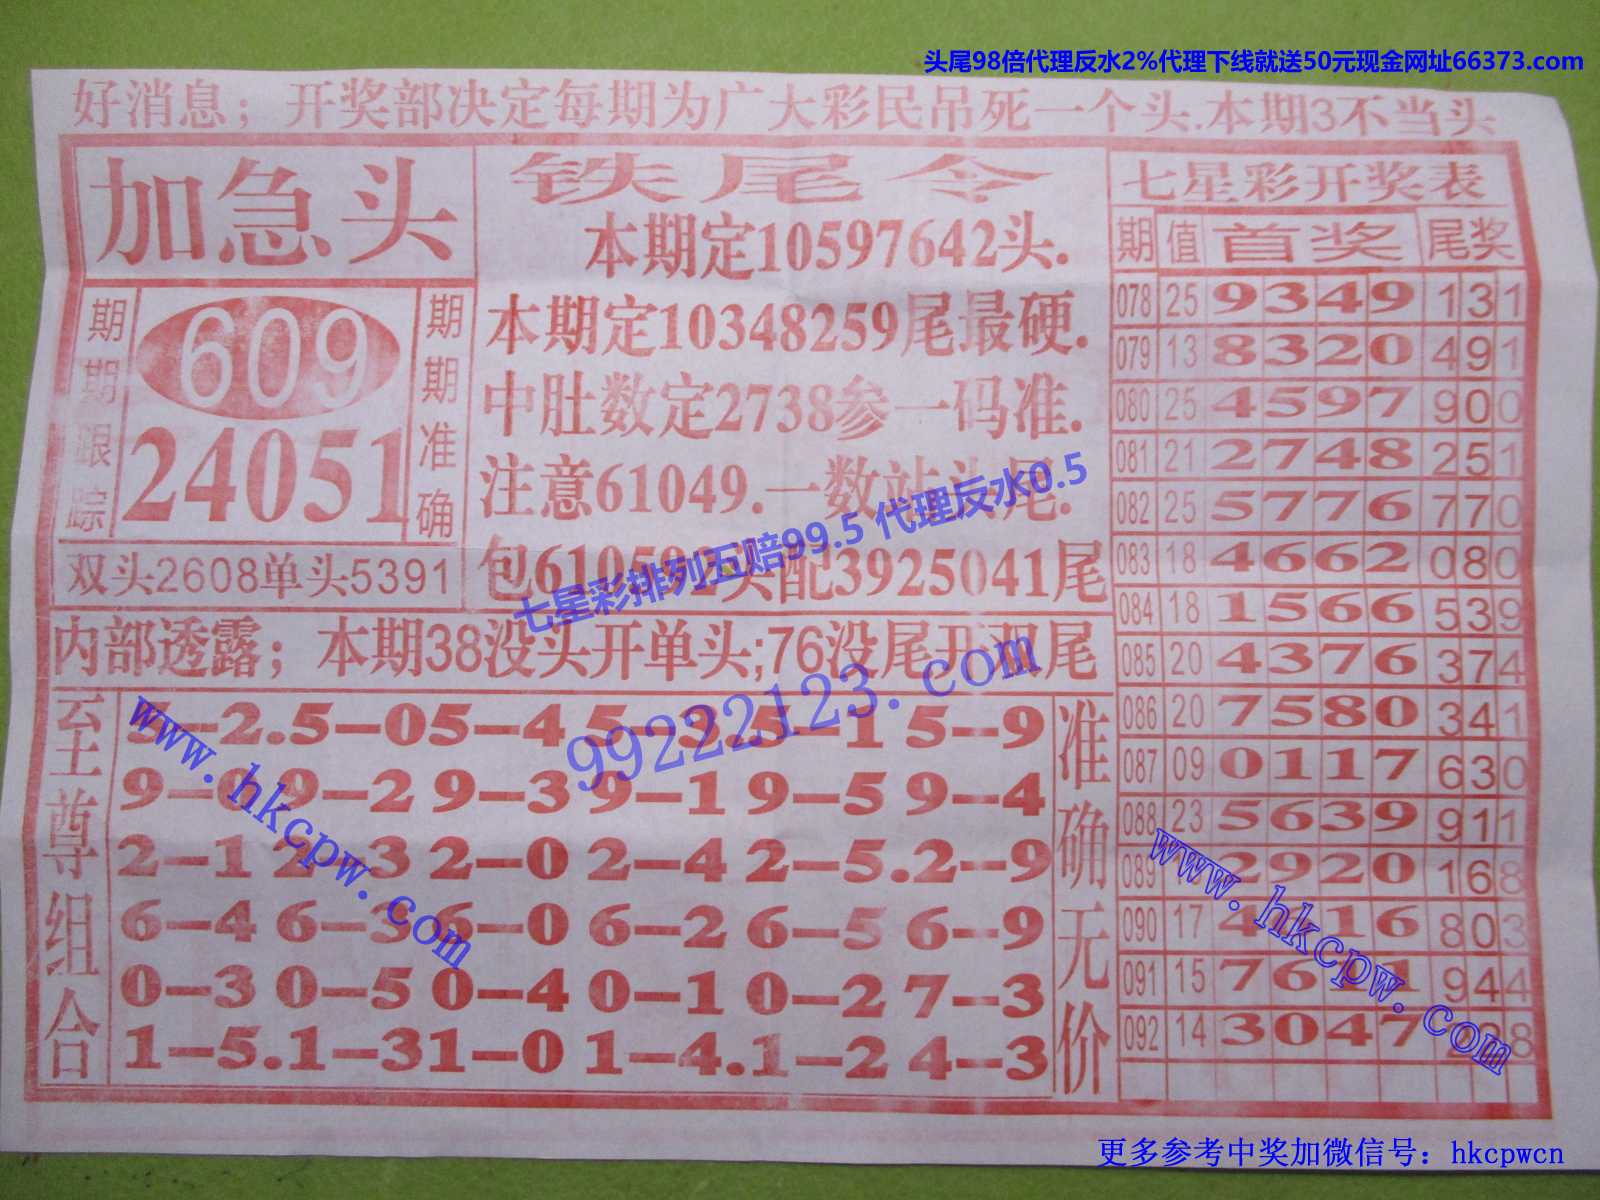 头尾98倍代理反水2%代理下线就送50元现金网址66373.com
好消息；开奖部决定每期为广大彩民吊死一个头.本期3不当头
加急头
期期跟踪
609
24051
期期准确
双头2608单头5391
铁尾令
本期定10597642头.
本期定10348259尾最硬.
中肚数定2738参一码准.
注意61049.一数站头尾.
配3925041尾
七星彩排列五赔99.5 代理反水0.5
99222123.com
内部透露；本期38没头开单头;76没尾开双尾
至尊组合
5-2.5-05-4 5-3.5-1 5-9
9-2 9-3 9-1 9-5 9-4
2-1 2-3 2-0 2-4 2-5.2-9
6-4 6-3 6-0 6-2 6-5 6-9
0-3 0-5 0-4 0-1 0-2 7-3
1-5.1-31-0 1-4.1-2 4-3
准确无价
www.hkcpw.com
七星彩开奖表
期 值 首奖 尾奖
078 25 9349 131
079 13 8320 491
080 25 4597 900
081 21 2748 251
082 25 5776 770
083 18 4662 080
084 18 1566 539
085 20 4376 374
086 20 7580 341
087 09 0117 630
088 23 5639 911
089 2920 168
090 17 16 803
091 15 7611 944
092 14 3047 8
www.hkcpw.com
更多参考中奖加微信号：hkcpwcn